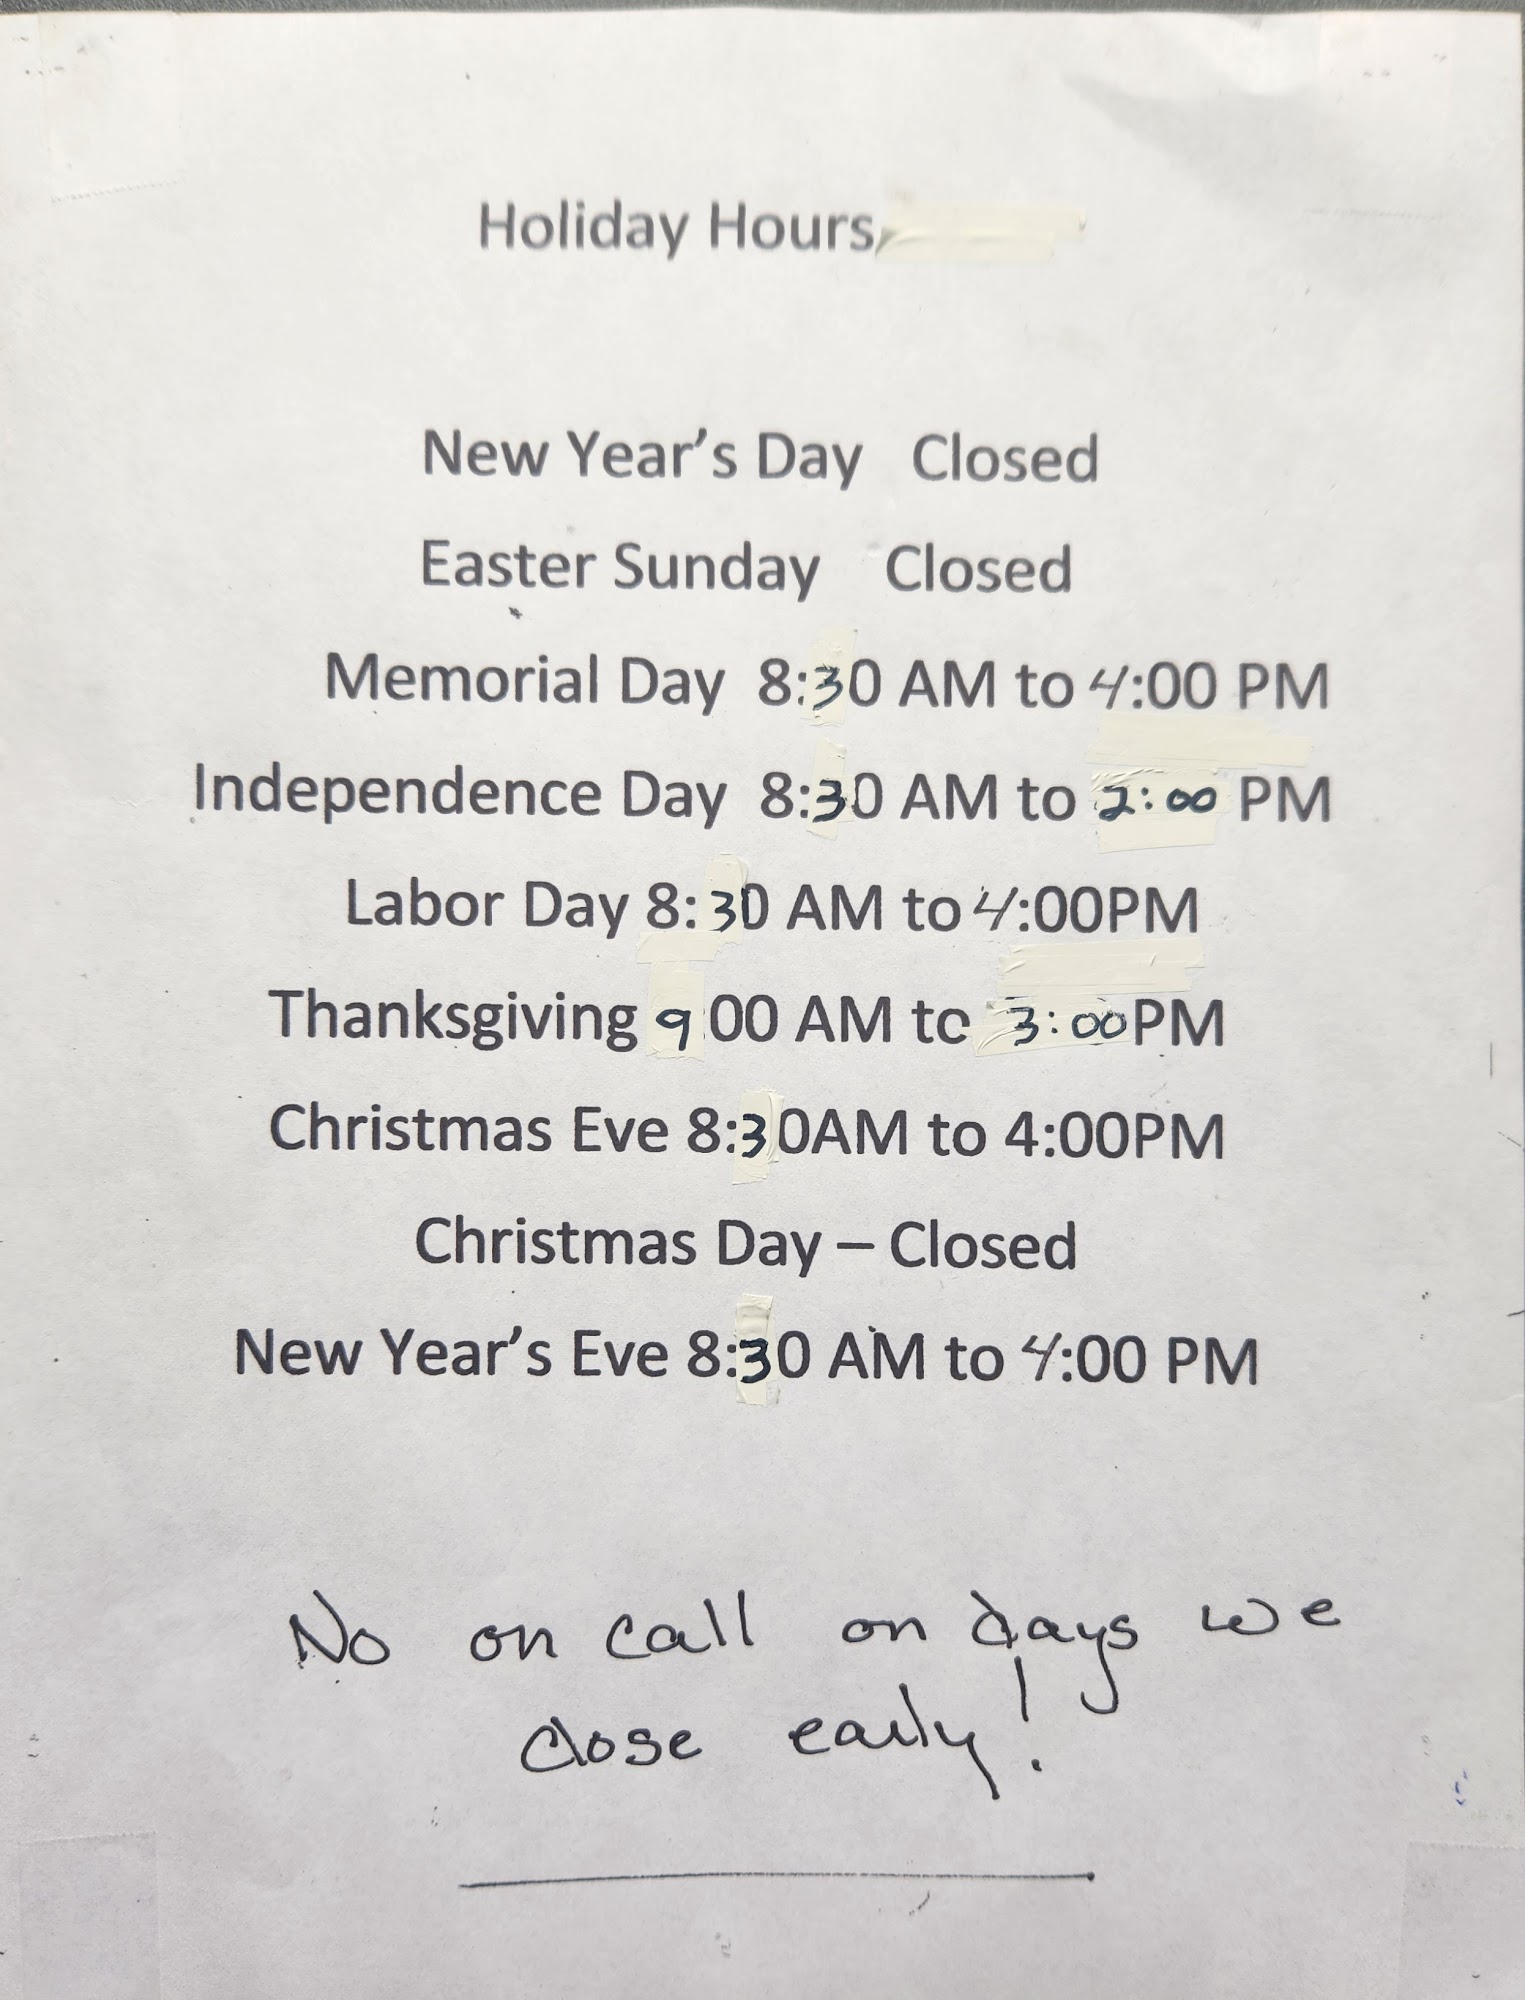 Holiday Hours
New Year's Day Closed
Easter Sunday Closed
Memorial Day 8:30 AM to 4:00 PM
Independence Day 8:30 AM to 2:00 PM
Labor Day 8:30 AM to 4:00PM
Thanksgiving 9:00 AM to 3:00PM
Christmas Eve 8:30AM to 4:00PM
Christmas Day – Closed
New Year's Eve 8:30 AM to 4:00 PM
No on call on days we
close early!